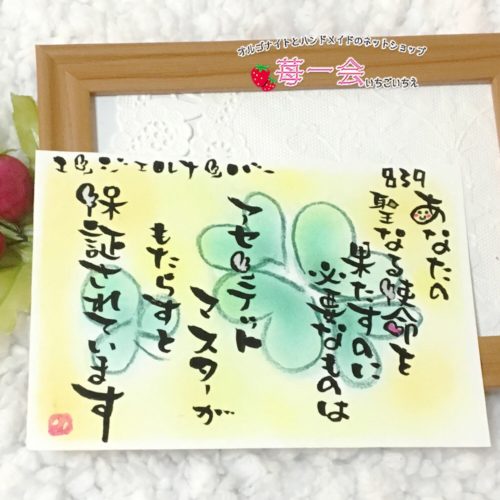 オルゴナイトとハンドメイドのネットショップ
苺一会
いちごいちえ
エンジェルナンバー
839
あなたの
聖なる使命を
果たすのに
必要なものは
アセンデット
マスターが
もたらすと
保証されています